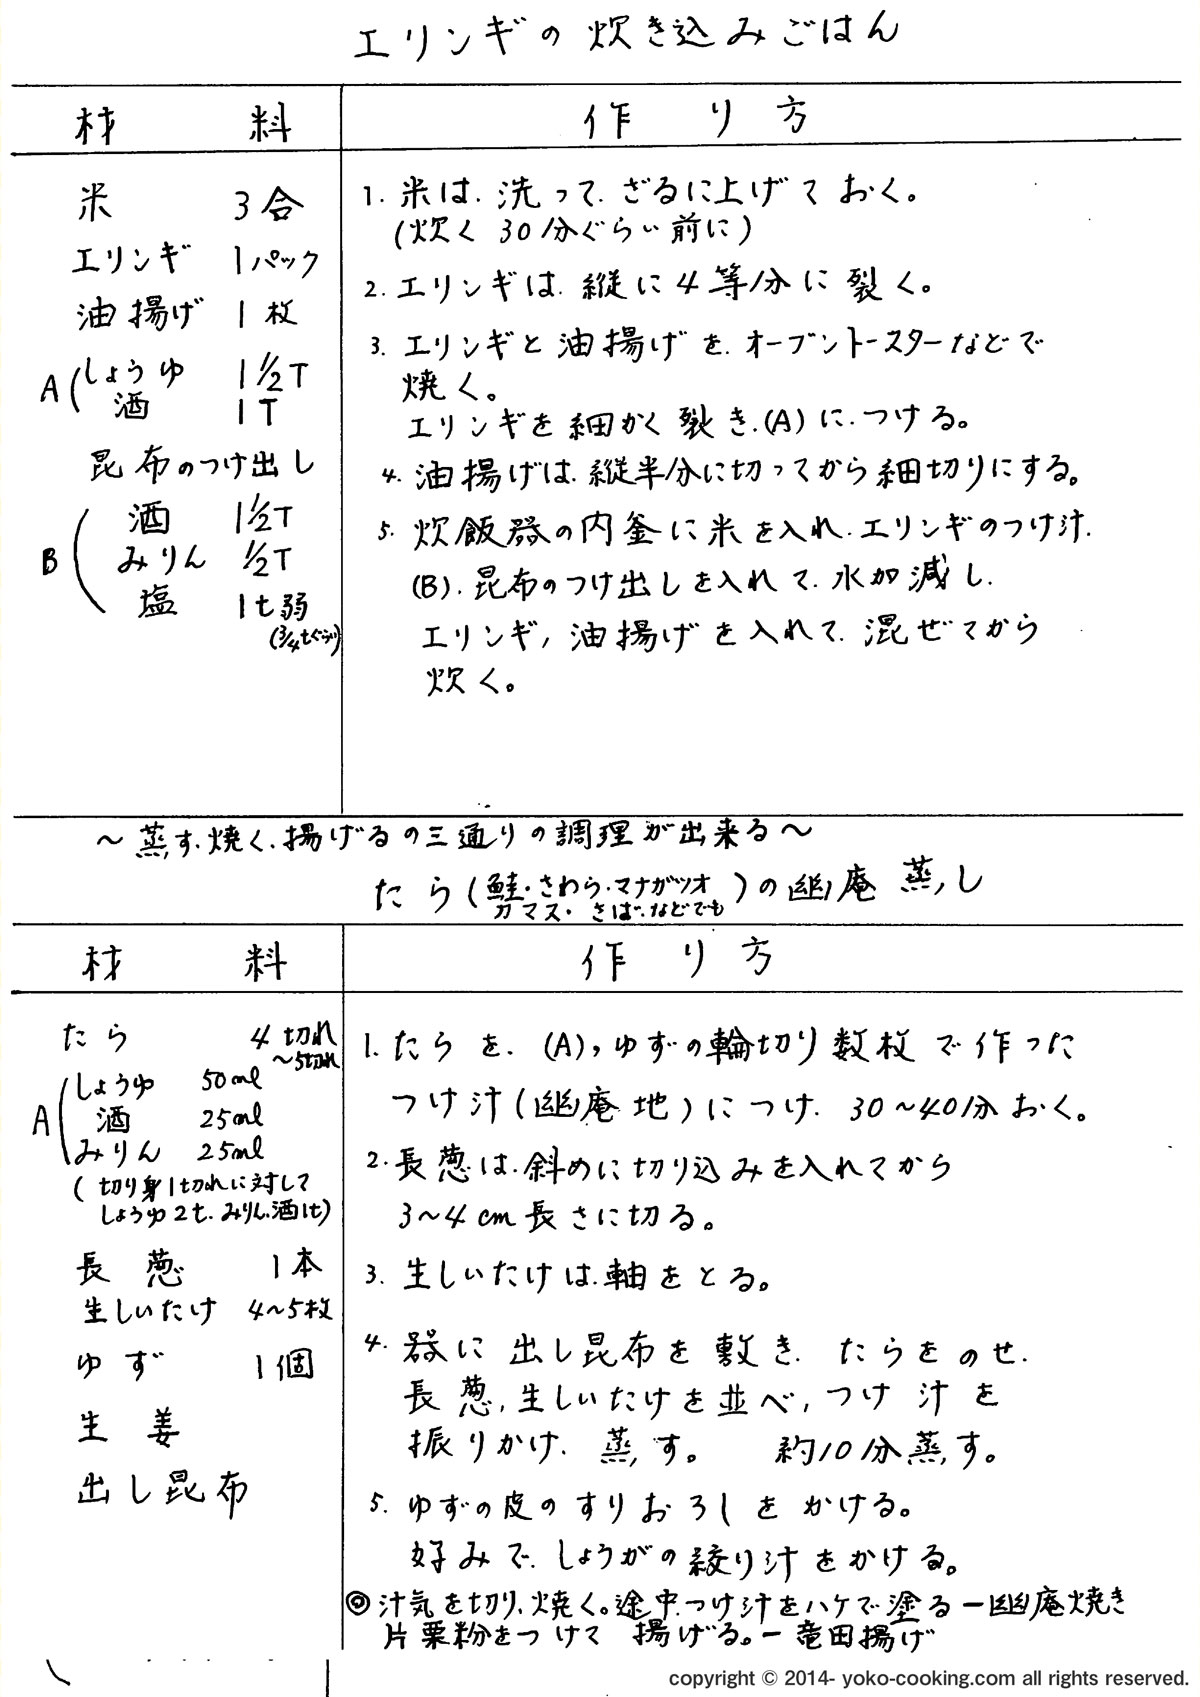 エリンギの炊き込みごはん
材料
作り方
米 3合
エリンギ 1パック
油揚げ 1枚
A
しょうゆ 1 1/2T
酒 1T
昆布のつけ出し
B
酒 1 1/2T
みりん 1/2T
塩 1t弱
(3/4tぐらい)
1. 米は、洗って、ざるに上げておく。
(炊く30分ぐらい前に)
2. エリンギは、縦に4等分に裂く。
3. エリンギと油揚げを、オーブントースターなどで
焼く。
エリンギを細かく裂き、(A)に、つける。
4. 油揚げは、縦半分に切ってから細切りにする。
5. 炊飯器の内釜に米を入れ、エリンギのつけ汁、
(B)、昆布のつけ出しを入れて、水加減し、
エリンギ、油揚げを入れて、混ぜてから
炊く。
〜蒸す、焼く、揚げるの三通りの調理が出来る〜
たら(鮭・さわら・マナガツオ
カマス・さば、などでも)の幽庵蒸し
材料
作り方
たら 4切れ
〜5切れ
A
しょうゆ 50ml
酒 25ml
みりん 25ml
(切り身1切れに対して
しょうゆ2t、みりん、酒1t)
長葱 1本
生しいたけ 4〜5枚
ゆず 1個
生姜
出し昆布
1. たらを、(A)、ゆずの輪切り数枚で作った
つけ汁(幽庵地)につけ、30〜40分おく。
2. 長葱は、斜めに切り込みを入れてから
3〜4cm長さに切る。
3. 生しいたけは、軸をとる。
4. 器に出し昆布を敷き、たらをのせ、
長葱、生しいたけを並べ、つけ汁を
振りかけ、蒸す。 約10分蒸す。
5. ゆずの皮のすりおろしをかける。
好みで、しょうがの絞り汁をかける。
◎汁気を切り、焼く。途中、つけ汁をハケで塗る―幽庵焼き
片栗粉をつけて揚げる。―竜田揚げ
copyright © 2014- yoko-cooking.com all rights reserved.